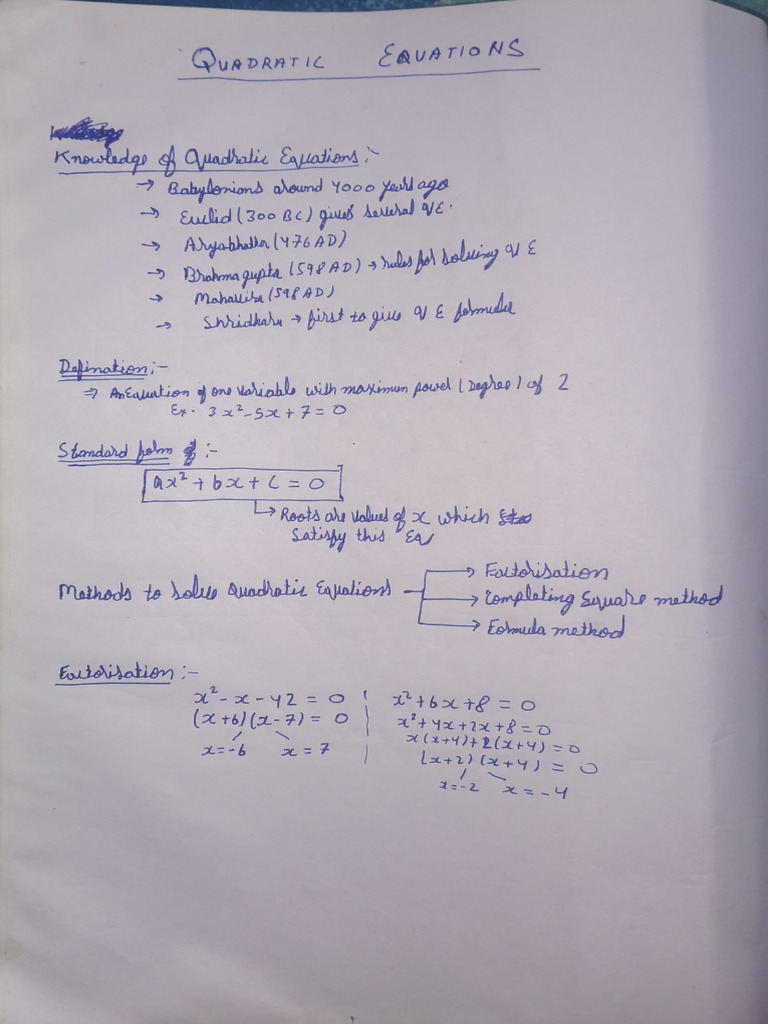 QUADRATIC EQUATIONS
Knowledge of Quadratic Equations :-
→ Babylonians around 4000 years ago
→ Euclid (300 BC) gives several QE.
→ Aryabhatta (476 AD)
→ Brahmagupta (598 AD) → rules for solving QE
→ Mahavira (598 AD)
→ Shridhara → first to give QE formula
Defination :-
⇒ An Equation of one variable with maximum power (Degree) of 2
Ex. 3x² - 5x + 7 = 0
Standard form :-
ax² + bx + c = 0
↳ Roots are values of x which
Satisfy this Eq
Methods to solve Quadratic Equations → Factorisation
→ Completing Square method
→ Formula method
Factorisation :-
x² - x - 42 = 0 | x² + 6x + 8 = 0
(x+6)(x-7) = 0 | x² + 4x + 2x + 8 = 0
x(x+4) + 2(x+4) = 0
x = -6 x = 7 | (x+2)(x+4) = 0
x = -2 x = -4